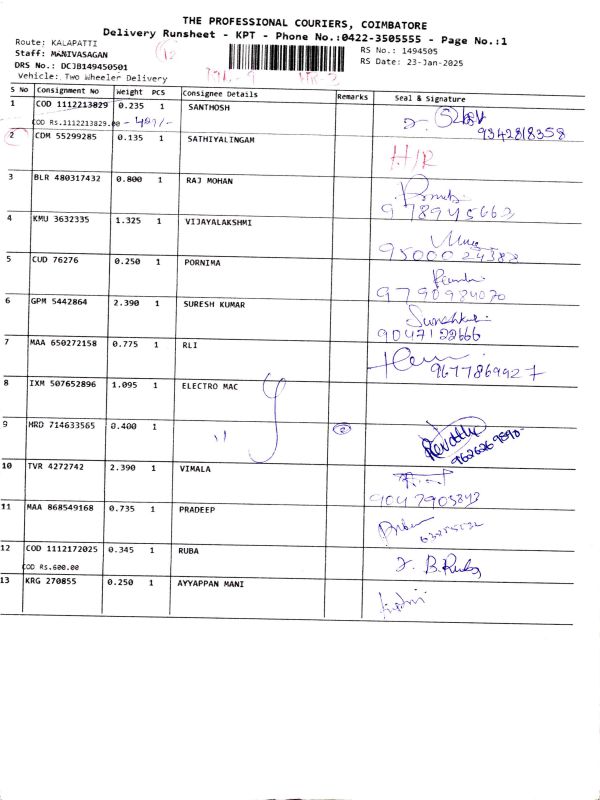 THE PROFESSIONAL COURIERS, COIMBATORE
Delivery Runsheet - KPT - Phone No.:0422-3505555 - Page No.:1
Route: KALAPATTI
Staff: MANIVASAGAN
RS No.: 1494505
DRS No.: DCJB149450501
RS Date: 23-Jan-2025
Vehicle: Two Wheeler Delivery
S No Consignment No Weight PCS Consignee Details Remarks Seal & Signature
1 COD 1112213829 0.235 1 SANTHOSH
COD RS.1112213829.00 9342818358
2 CDM 55299285 0.135 1 SATHIYALINGAM H/R
3 BLR 480317432 0.800 1 RAJ MOHAN
978945662
4 KMU 3632335 1.325 1 VIJAYALAKSHMI
9500024388
5 CUD 76276 0.250 1 PORNIMA
9790984070
6 GPM 5442864 2.390 1 SURESH KUMAR
9047122666
7 MAA 650272158 0.775 1 RLI
9677869927
8 IXM 507652896 1.095 1 ELECTRO MAC
9 HRD 714633565 0.400 1 "
10 TVR 4272742 2.390 1 VIMALA
9047905343
11 MAA 868549168 0.735 1 PRADEEP
12 COD 1112172025 0.345 1 RUBA
COD RS.600.00
13 KRG 270855 0.250 1 AYYAPPAN MANI